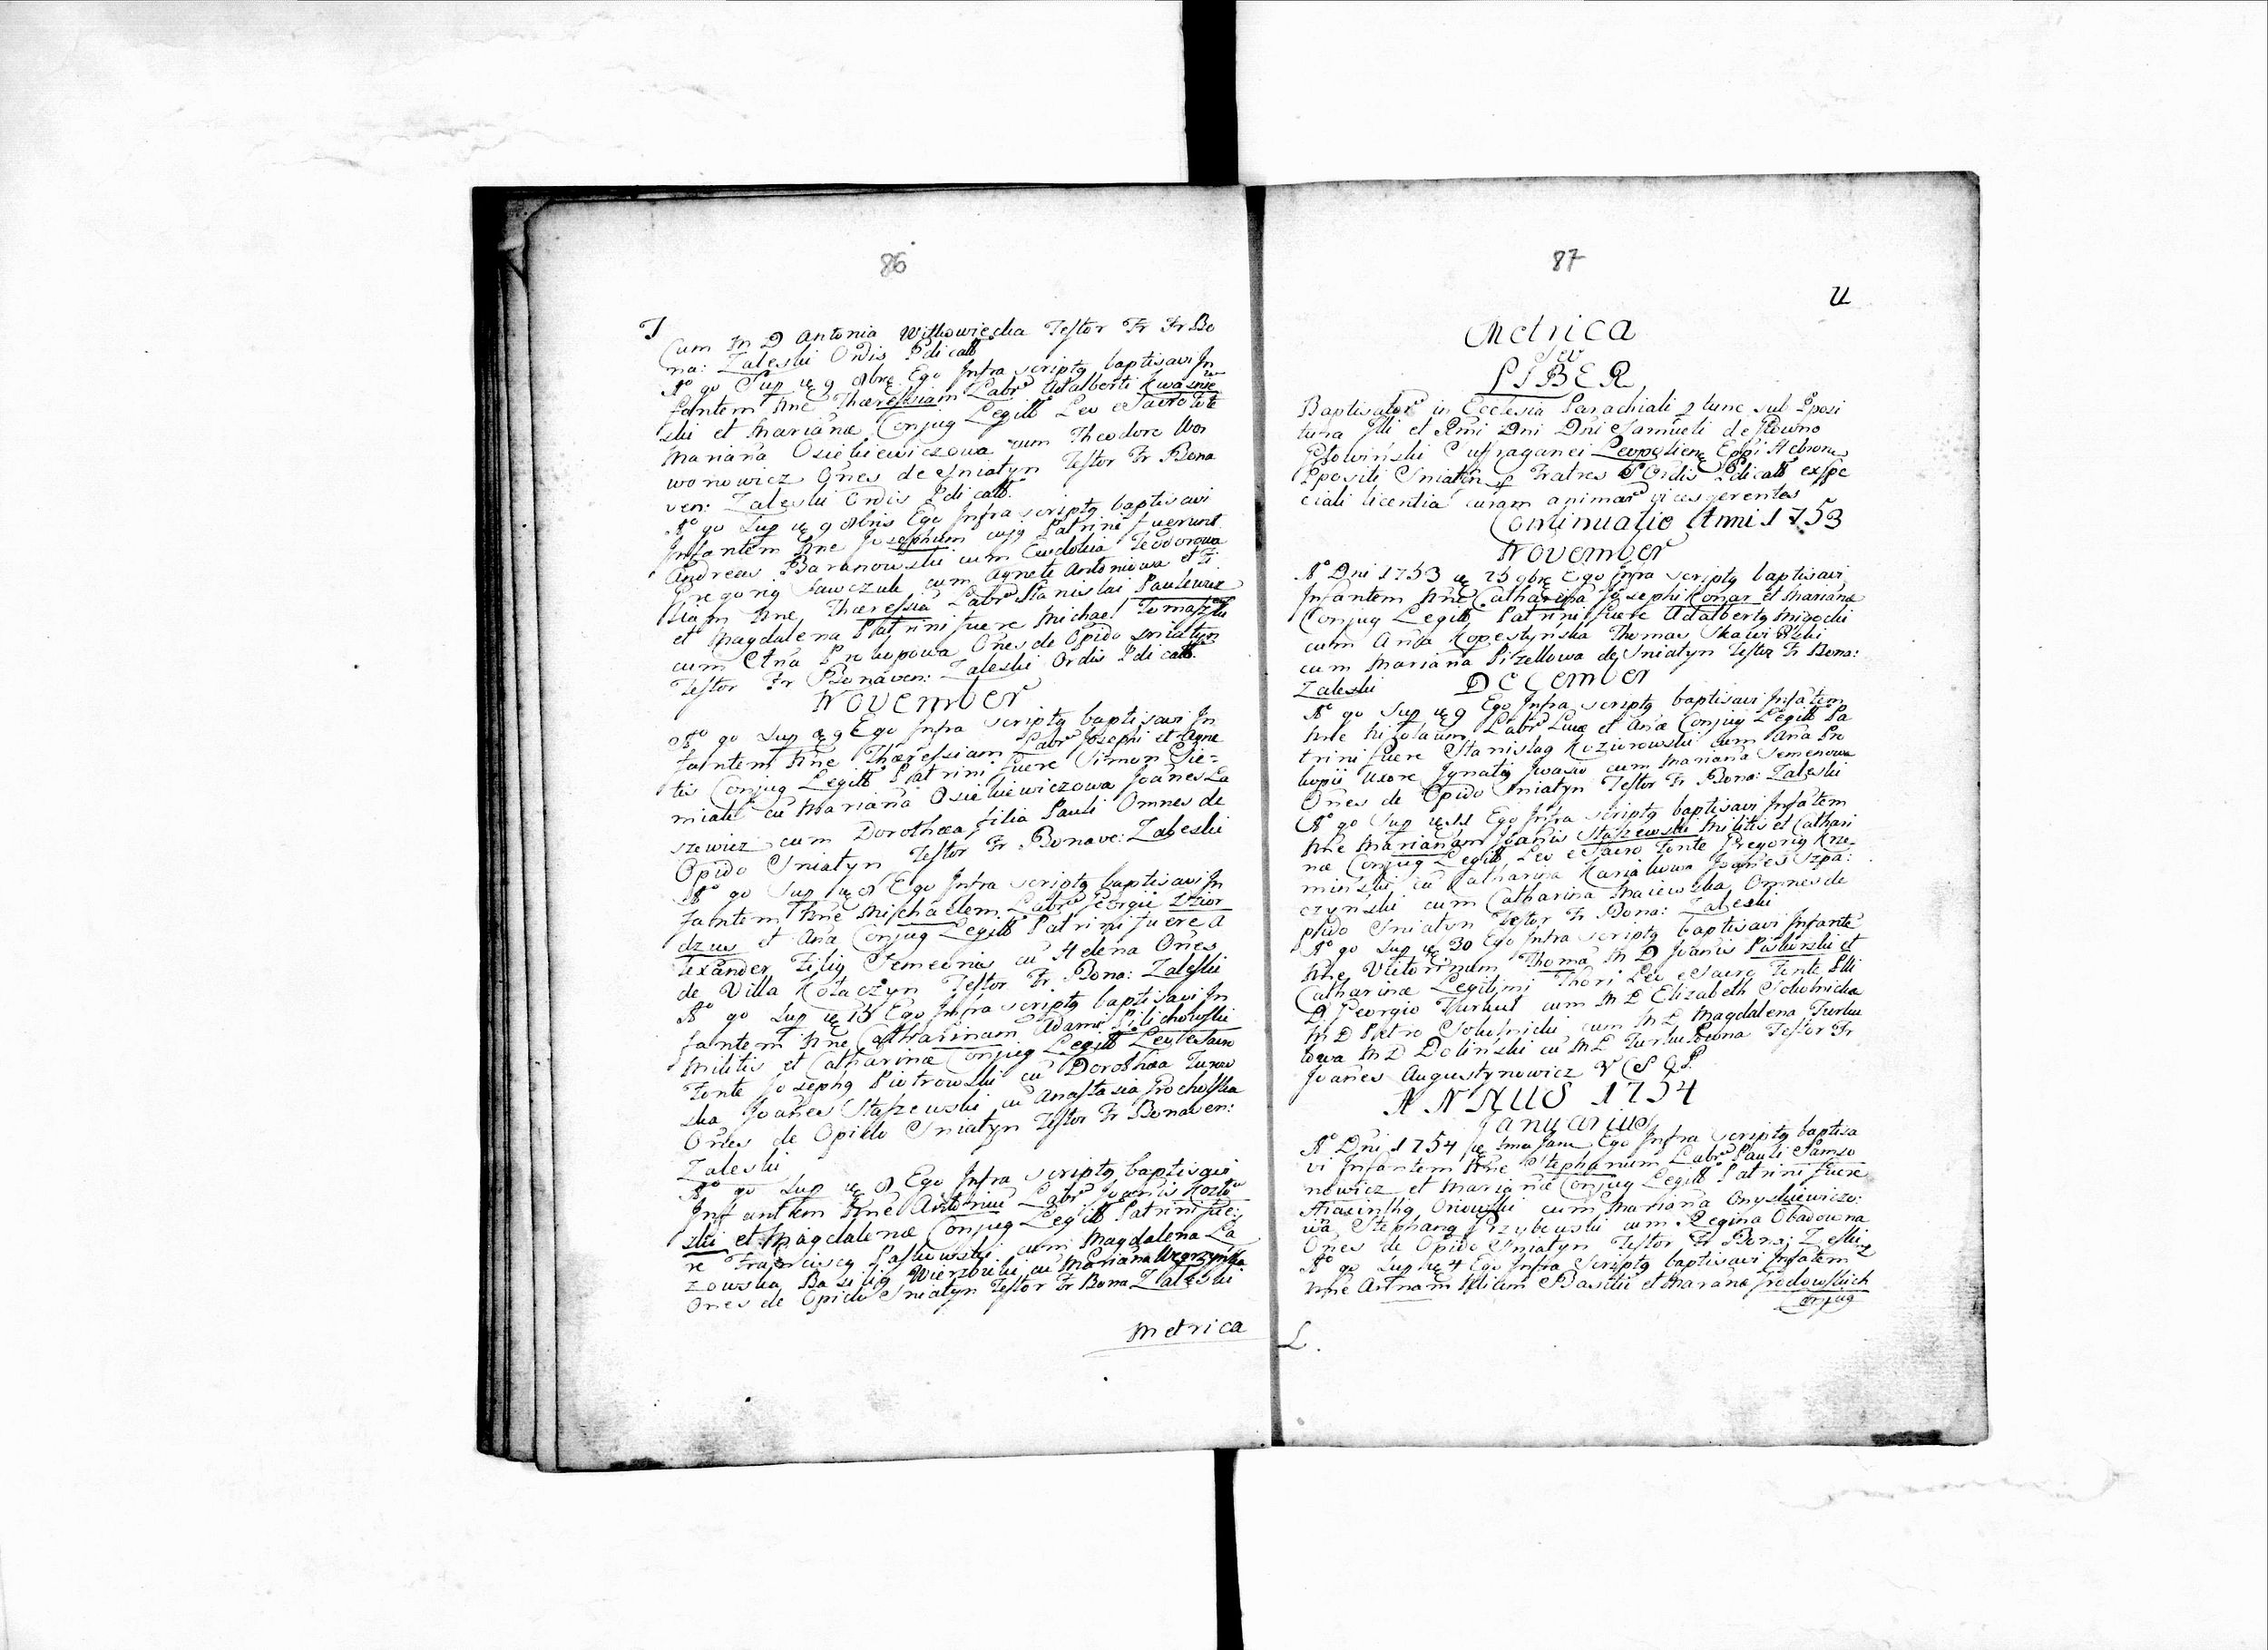 86
J
Cum M D Antonia Witkowiecka Testor Fr Fr Bo
na: Zaleski Ordis Pdicatt
Aº qo Sup ụe 9 8bre Ego Infra scriptq baptisavi In
fantem Nne Theressiam Labr Adalberti Kwasnie
ski et Marianæ Conjug Legitt Lev e Sacro Fote
Mariana Osiekiewiczowa cum Theodoro Wor
worowicz Ones de Sniatyn Testor Fr Bona
ven: Zaleski Ordis Pdicatt.
Aº qo Sup ue 9 8bris Ego Infra scriptq baptisavi
Infantem Nne Josephum cujq Patrini fuerunt
Andreas Baranowski cum Eudokia Teodorowa
Gregoriq Sawczuk cum Agnete Antoniowa et Fi
liam Nne Theressia Labr Stanislai Paulewicz
et Magdalena Patrini fuere Michael Tomaszew
cum Ana Prokopowa Ones de Opido Sniatyn
Testor Fr Bonaven: Zaleski Ordis Pdicatt.
November
Aº qo Sup ue 9 Ego Infra scriptq baptisavi In
fantem Nne Theressiam Labr Josephi et Agne
tis Conjug Legitt Patrini fuere Simon Sie=
miak cu Mariana Osiekiewiczowa Joanes La
szewicz cum Dorothea filia Pauli Omnes de
Opido Sniatyn Testor Fr Bonave: Zaleski
Aº qo Sup ue 8 Ego Infra scriptq baptisavi In
fantem Nne Michaelem Labr Georgii Dzior
dzus et Ana Conjug Legitt Patrini fuere A
lexander Filiq Semeonis cu Helena Ones
de Villa Kołaczyn Testor Fr Bona: Zaleski
Aº qo Sup ue 13 Ego Infra scriptq baptisavi In
fantem Nne Catharinam Adami Pilichowski
Militis et Catharinæ Conjug Legitt Lev e Sacro
Fonte Josephq Piotrowski cu Dorothea Turow
ska Joanes Staszewski cu Anastasia Grocholska
Ones de Opido Sniatyn Testor Fr Bonaven:
Zaleski
Aº qo Sup ue 8 Ego Infra scriptq baptisavi
Infantem Nne Antoniu Labr Joanis Kozło
ski et Magdalenæ Conjug Legitt Patrini fue:
re Franciscq Paskowski cum Magdalena La
zowska Basiliq Wierzbicki cu Mariana Węgrzynka
Ones de Opido Sniatyn Testor Fr Bona Zaleski
Metrica
87
U
Metrica
Seu
LIBER
Baptisator in Ecclesia Parachiali p tunc sub Pposi
tura Illi et Rmi Dni Dni Samueli de Głowno
Głowiński Suffraganei Leopolien Eppi Hebrone
Ppositi Sniatin p Fratres S Ordis Pdicatt ex spe
ciali licentia curam animar vices gerentes
Continuatio Anni 1753
November
Aº Dni 1753 ue 25 9bre Ego Infra scriptq baptisavi
Infantem Nne Catharina Josephi Konar et Mariane
Conjug Legitt Patrini fuere Adalbertq Migocki
cum Ana Kopestyńska Thomas Skawiński
cum Mariana Pizellowa de Sniatyn Testor Fr Bona:
Zaleski
December
Aº qo Sup ue 9 Ego Infra scriptq baptisavi Infatem
Nne Nikolaum Labr Lucæ et Anæ Conjug Legitt Pa
trini fuere Stanislaq Koziorowski cum Ana Pro
kopii Uxore Ignatiq Iwasiw cum Mariana Semenowa
Ones de Opido Sniatyn Testor Fr Bona: Zaleski
Aº qo Sup ue 11 Ego Infra scriptq baptisavi Infatem
Nne Marianam Joanis Staszewski Militis et Cathari
næ Conjug Legitt Lev e Sacro Fonte Gregoriq Krze
miński cu Catharina Kariakowa Joanes Szpa:
czyński cum Catharina Maiewska Omnes de
pido Sniatyn Testor Fr Bona: Zaleski
Aº qo Sup ue 30 Ego Infra scriptq baptisavi Infante
Nne Victorinum Thoma M D Joanis Paskurski et
Catharinæ Legitimi Thori Lev e Sacro Fonte Illi
D Georgio Turkuł cum M D Elizabeth Sokolnicka
M D Pietro Sokolnicki cum M D Magdalena Turku
łowa M D Doliński cu M D Turkułowna Testor Fr
Joanes Augustynowicz V C S O P.
ANNUS 1754
Januarius
Aº Dni 1754 ue 1ma Janu Ego Infra scriptq baptisa
vi Infantem Nne Stephanum Labr Pauli Samso
nowicz et Marianæ Conjug Legitt Patrini fuere
Hiacinthq Oriowski cum Mariana Onyskiewiczo:
wa Stephanq Przybewski cum Regina Obadowna
Ones de Opido Sniatyn Testor Fr Bona: Zeski
Aº qo Sup ue 4 Ego Infra Scriptq baptisavi Infatem
Nne Annam filiam Basilii et Mariana Gredowskich
Conjug
L.